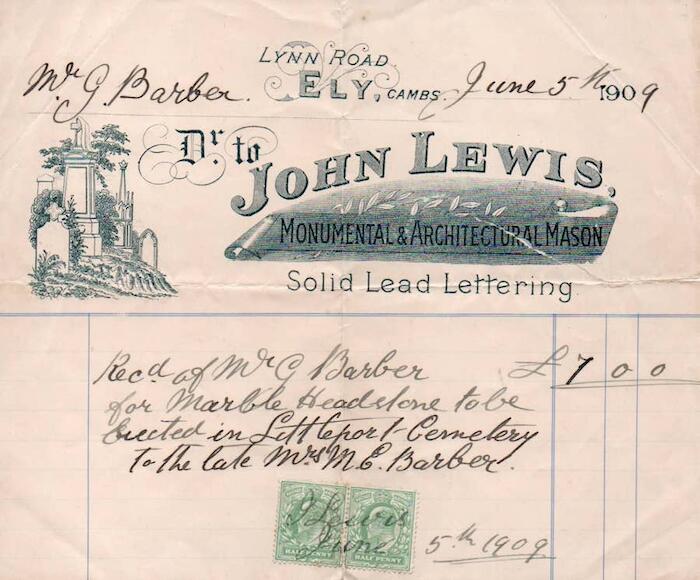 LYNN ROAD
ELY, CAMBS.
Mr G. Barber. June 5th 1909
Dr. to
JOHN LEWIS,
MONUMENTAL & ARCHITECTURAL MASON
Solid Lead Lettering
Recd of Mr G Barber £7 0 0
for Marble Headstone to be
Erected in Littleport Cemetery
to the late Mrs M.E. Barber.
J Lewis
June 5th 1909
HALF PENNY HALF PENNY